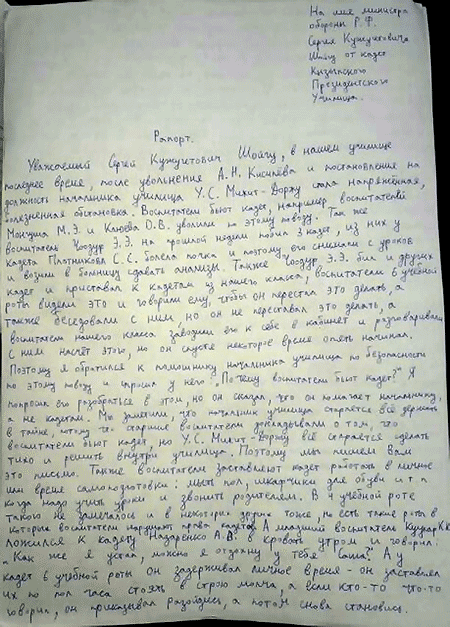 На имя министра
обороны Р.Ф.
Сергея Кужугетовича
Шойгу от кадет
Кызылского
Президентского
Училища.
Рапорт.
Уважаемый Сергей Кужугетович Шойгу, в нашем училище
последнее время, после увольнения А.Н. Киселёва и постановления на
должность начальника училища У.С. Микит-Доржу стала напряжённая,
болезненная обстановка. Воспитатели бьют кадет, например воспитателей
Монгуша М.Э. и Клюева О.В. уволили по этому поводу. Так же
воспитатель Чоодур Э.Э. на прошлой неделе побил 3 кадет, из них у
кадета Плотникова С.С. болела почка и поэтому его снимали с уроков
и возили в больницу сдавать анализы. Также Чоодур Э.Э. бил и других
кадет и приставал к кадетам из нашего класса, воспитатели 6 учебной
роты видели это и говорили ему, чтобы он перестал это делать, а
также беседовали с ним, но он не переставал это делать, а
воспитатели нашего класса заводили его к себе в кабинет и разговаривали
с ним насчёт этого, но он спустя некоторое время опять начинал.
Поэтому я обратился к помошнику начальника училища по безопасности
по этому поводу и спросил у него "Почему воспитатели бьют кадет?" Я
попросил его разобраться в этом, но он сказал, что он помогает начальнику,
а не кадетам. Мы заметили, что начальник училища старается всё держать
в тайне, потому что старшие воспитатели докладывали о том, что
воспитатели бьют кадет, но У.С. Микит-Доржу всё старается сделать
тихо и решить внутри училища. Поэтому мы пишем Вам
это письмо. Также воспитатели заставляют кадет работать в личное
или время самоподготовки: мыть пол, шкафчики для обуви и т.п
когда надо учить уроки и звонить родителям. В 4 учебной роте
такого не замечалось и в некоторых других тоже, но есть такие роты в
которых воспитатели нарушают права кадетов. А младший воспитатель Кудиар К.К
ложился к кадету Назаренко А.В. в кровать утром и говорил:
"Как же я устал, можно я отдохну у тебя Саша?" А у
кадет 6 учебной роты он задерживал личное время - он заставлял
их по пол часа стоять в строю молча, а если кто-то что-то
говорил, он приказывал разойдись, а потом снова становись.